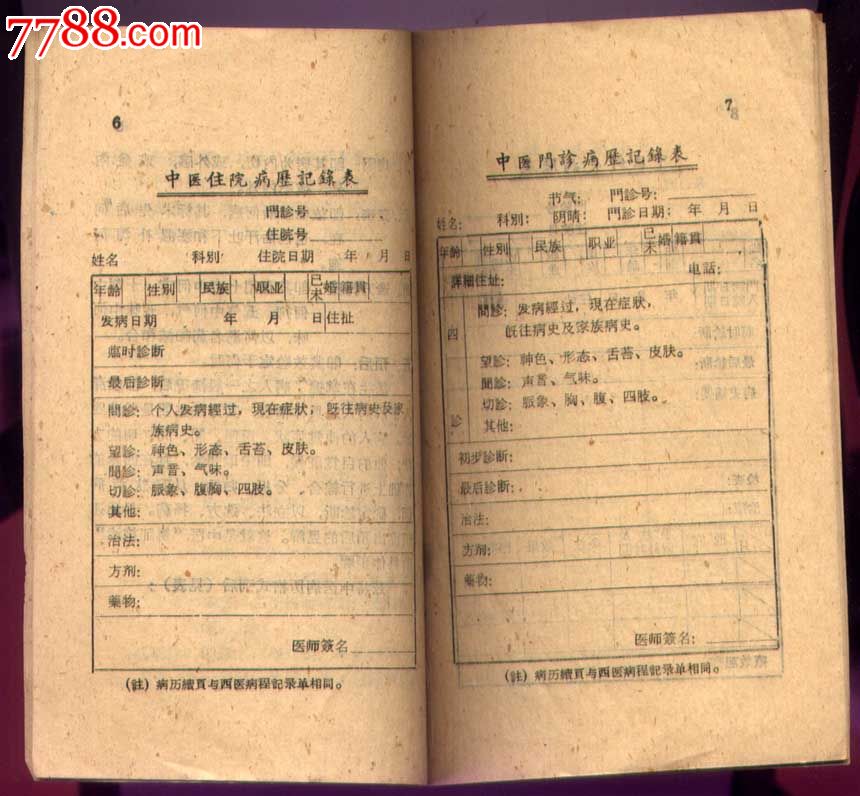 7788.com
6
中医住院病歷記錄表
門診号
住院号
姓名 科別 住院日期 年 月 日
年齡 性別 民族 职业 已未婚 籍貫
发病日期 年 月 日 住扯
临时診断
最后診断
問診: 个人发病經过, 現在症狀, 旣往病史及家
族病史。
望診: 神色、形态、舌苔、皮肤。
聞診: 声音、气味。
切診: 脈象、腹胸、四肢。
其他:
治法:
方剂:
藥物:
医师簽名
(註) 病历續頁与西医病程記录单相同。
7
中医門診病歷記錄表
节气: 門診号:
姓名: 科別: 阴晴: 門診日期: 年 月 日
年齡 性別 民族 职业 已未婚 籍貫
詳細住址: 电話:
四診
問診: 发病經过, 現在症狀,
旣往病史及家族病史。
望診: 神色、形态、舌苔、皮肤。
聞診: 声音、气味。
切診: 脈象、胸、腹、四肢。
其他:
初步診断:
最后診断:
治法:
方剂:
藥物:
医师簽名:
(註) 病历續頁与西医病程記录单相同。